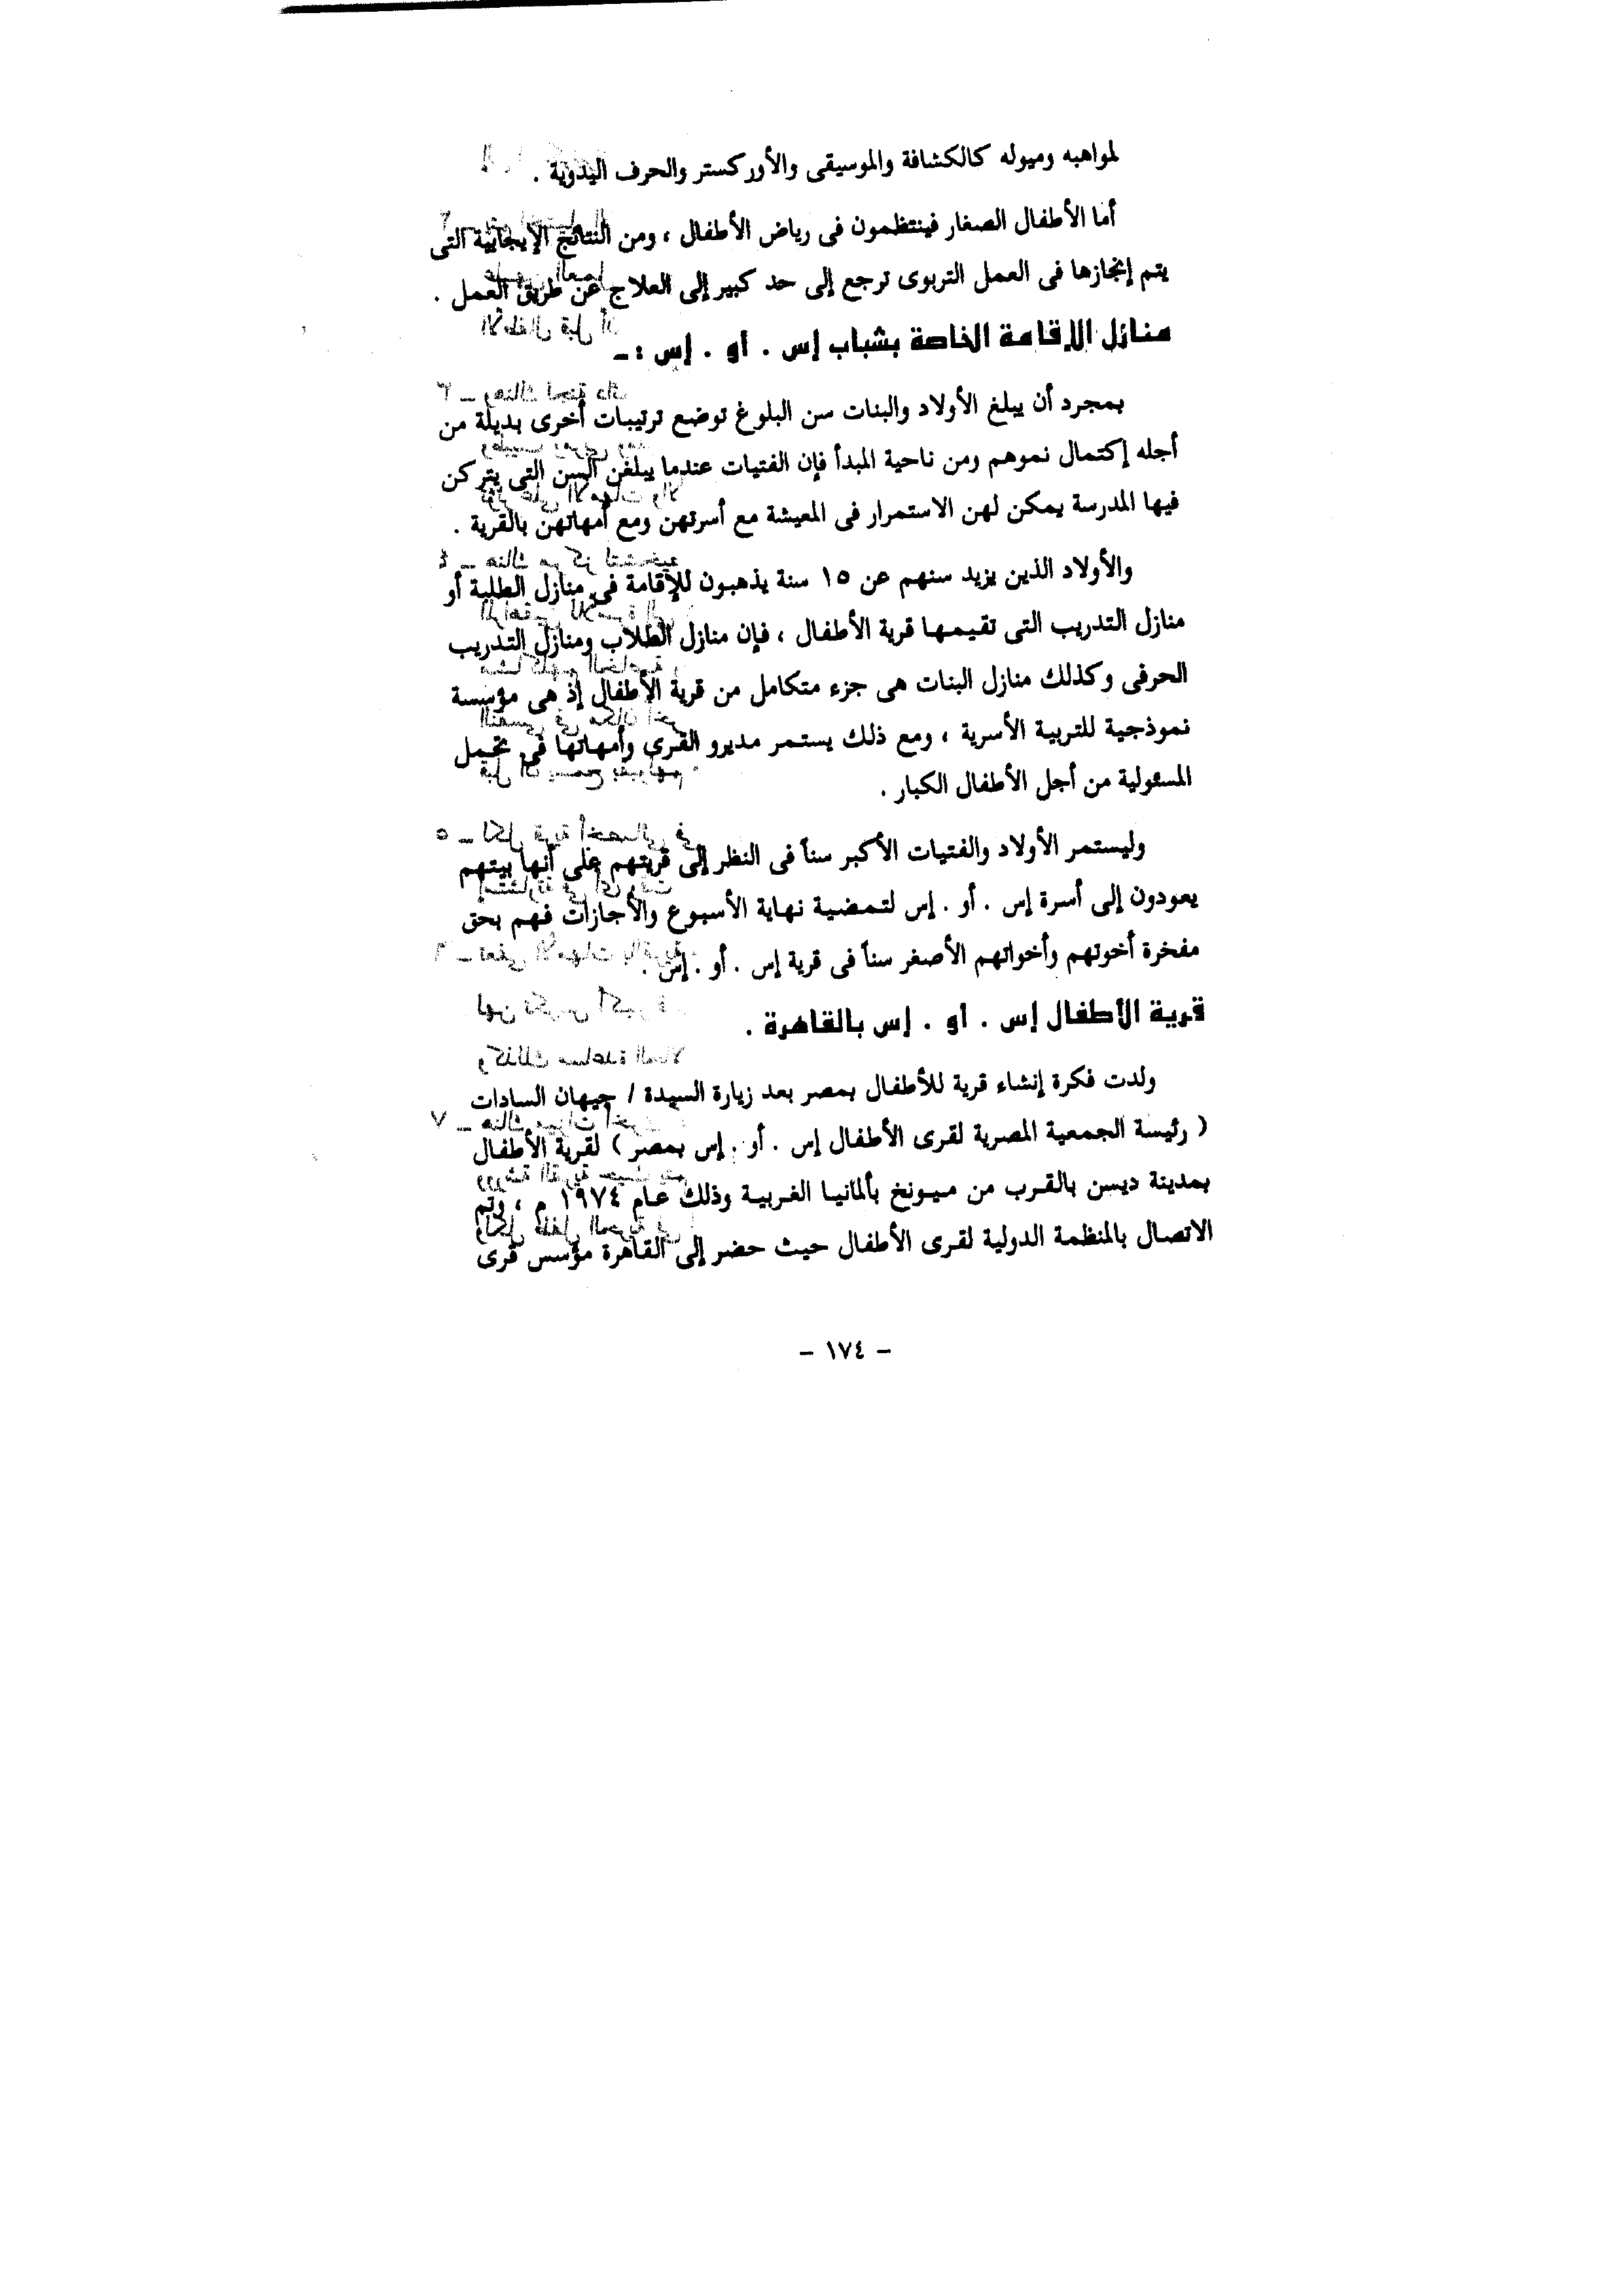 لمواهبه وميوله كالكشافة والموسيقى والأوركستر والحرف اليدوية .
أما الأطفال الصغار فينتظمون فى رياض الأطفال ، ومن النتائج الإيجابية التى
يتم إنجازها فى العمل التربوى ترجع إلى حد كبير إلى العلاج عن طريق العمل .
منازل الإقامة الخاصة بشباب إس . أو . إس : ـ
بمجرد أن يبلغ الأولاد والبنات سن البلوغ توضع ترتيبات أخرى بديلة من
أجله إكتمال نموهم ومن ناحية المبدأ فإن الفتيات عندما يبلغن السن التى يتركن
فيها المدرسة يمكن لهن الاستمرار فى المعيشة مع أسرتهن ومع أمهاتهن بالقرية .
والأولاد الذين يزيد سنهم عن ١٥ سنة يذهبون للإقامة فى منازل الطلبة أو
منازل التدريب التى تقيمها قرية الأطفال ، فإن منازل الطلاب ومنازل التدريب
الحرفى وكذلك منازل البنات هى جزء متكامل من قرية الأطفال إذ هى مؤسسة
نموذجية للتربية الأسرية ، ومع ذلك يستمر مديرو القرى وأمهاتها فى تحمل
المسئولية من أجل الأطفال الكبار .
وليستمر الأولاد والفتيات الأكبر سناً فى النظر إلى قريتهم على أنها بيتهم
يعودون إلى أسرة إس . أو . إس لتمضية نهاية الأسبوع والأجازات فهم بحق
مفخرة أخوتهم وأخواتهم الأصغر سناً فى قرية إس . أو . إس .
قرية الأطفال إس . أو . إس بالقاهرة .
ولدت فكرة إنشاء قرية للأطفال بمصر بعد زيارة السيدة / جيهان السادات
( رئيسة الجمعية المصرية لقرى الأطفال إس . أو . إس بمصر ) لقرية الأطفال
بمدينة ديسن بالقرب من ميونخ بألمانيا الغربية وذلك عام ١٩٧٤ م ، وتم
الاتصال بالمنظمة الدولية لقرى الأطفال حيث حضر إلى القاهرة مؤسس قرى
- ١٧٤ -